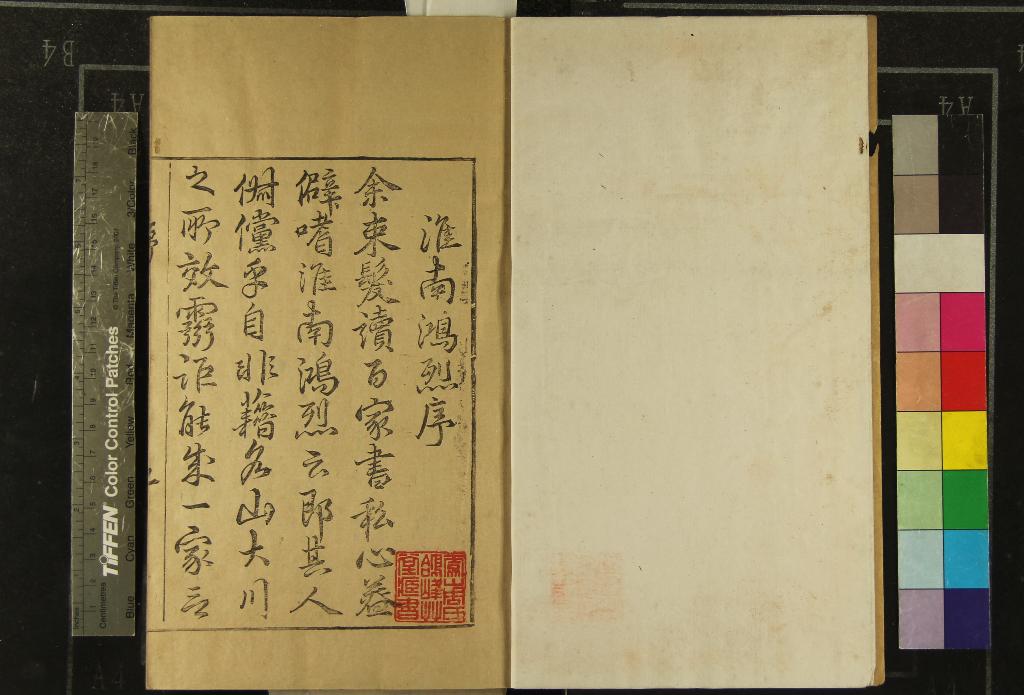 淮南鴻烈序
余束髮讀百家書私心益
僻嗜淮南鴻烈云即其人
倜儻乎自非藉名山大川
之所效靈詎能成一家言
TIFFEN Color Control Patches
Centimetres
Inches
Blue
Cyan
Green
Yellow
Red
Magenta
White
3/Color
Black
B4
A4
A4
A4